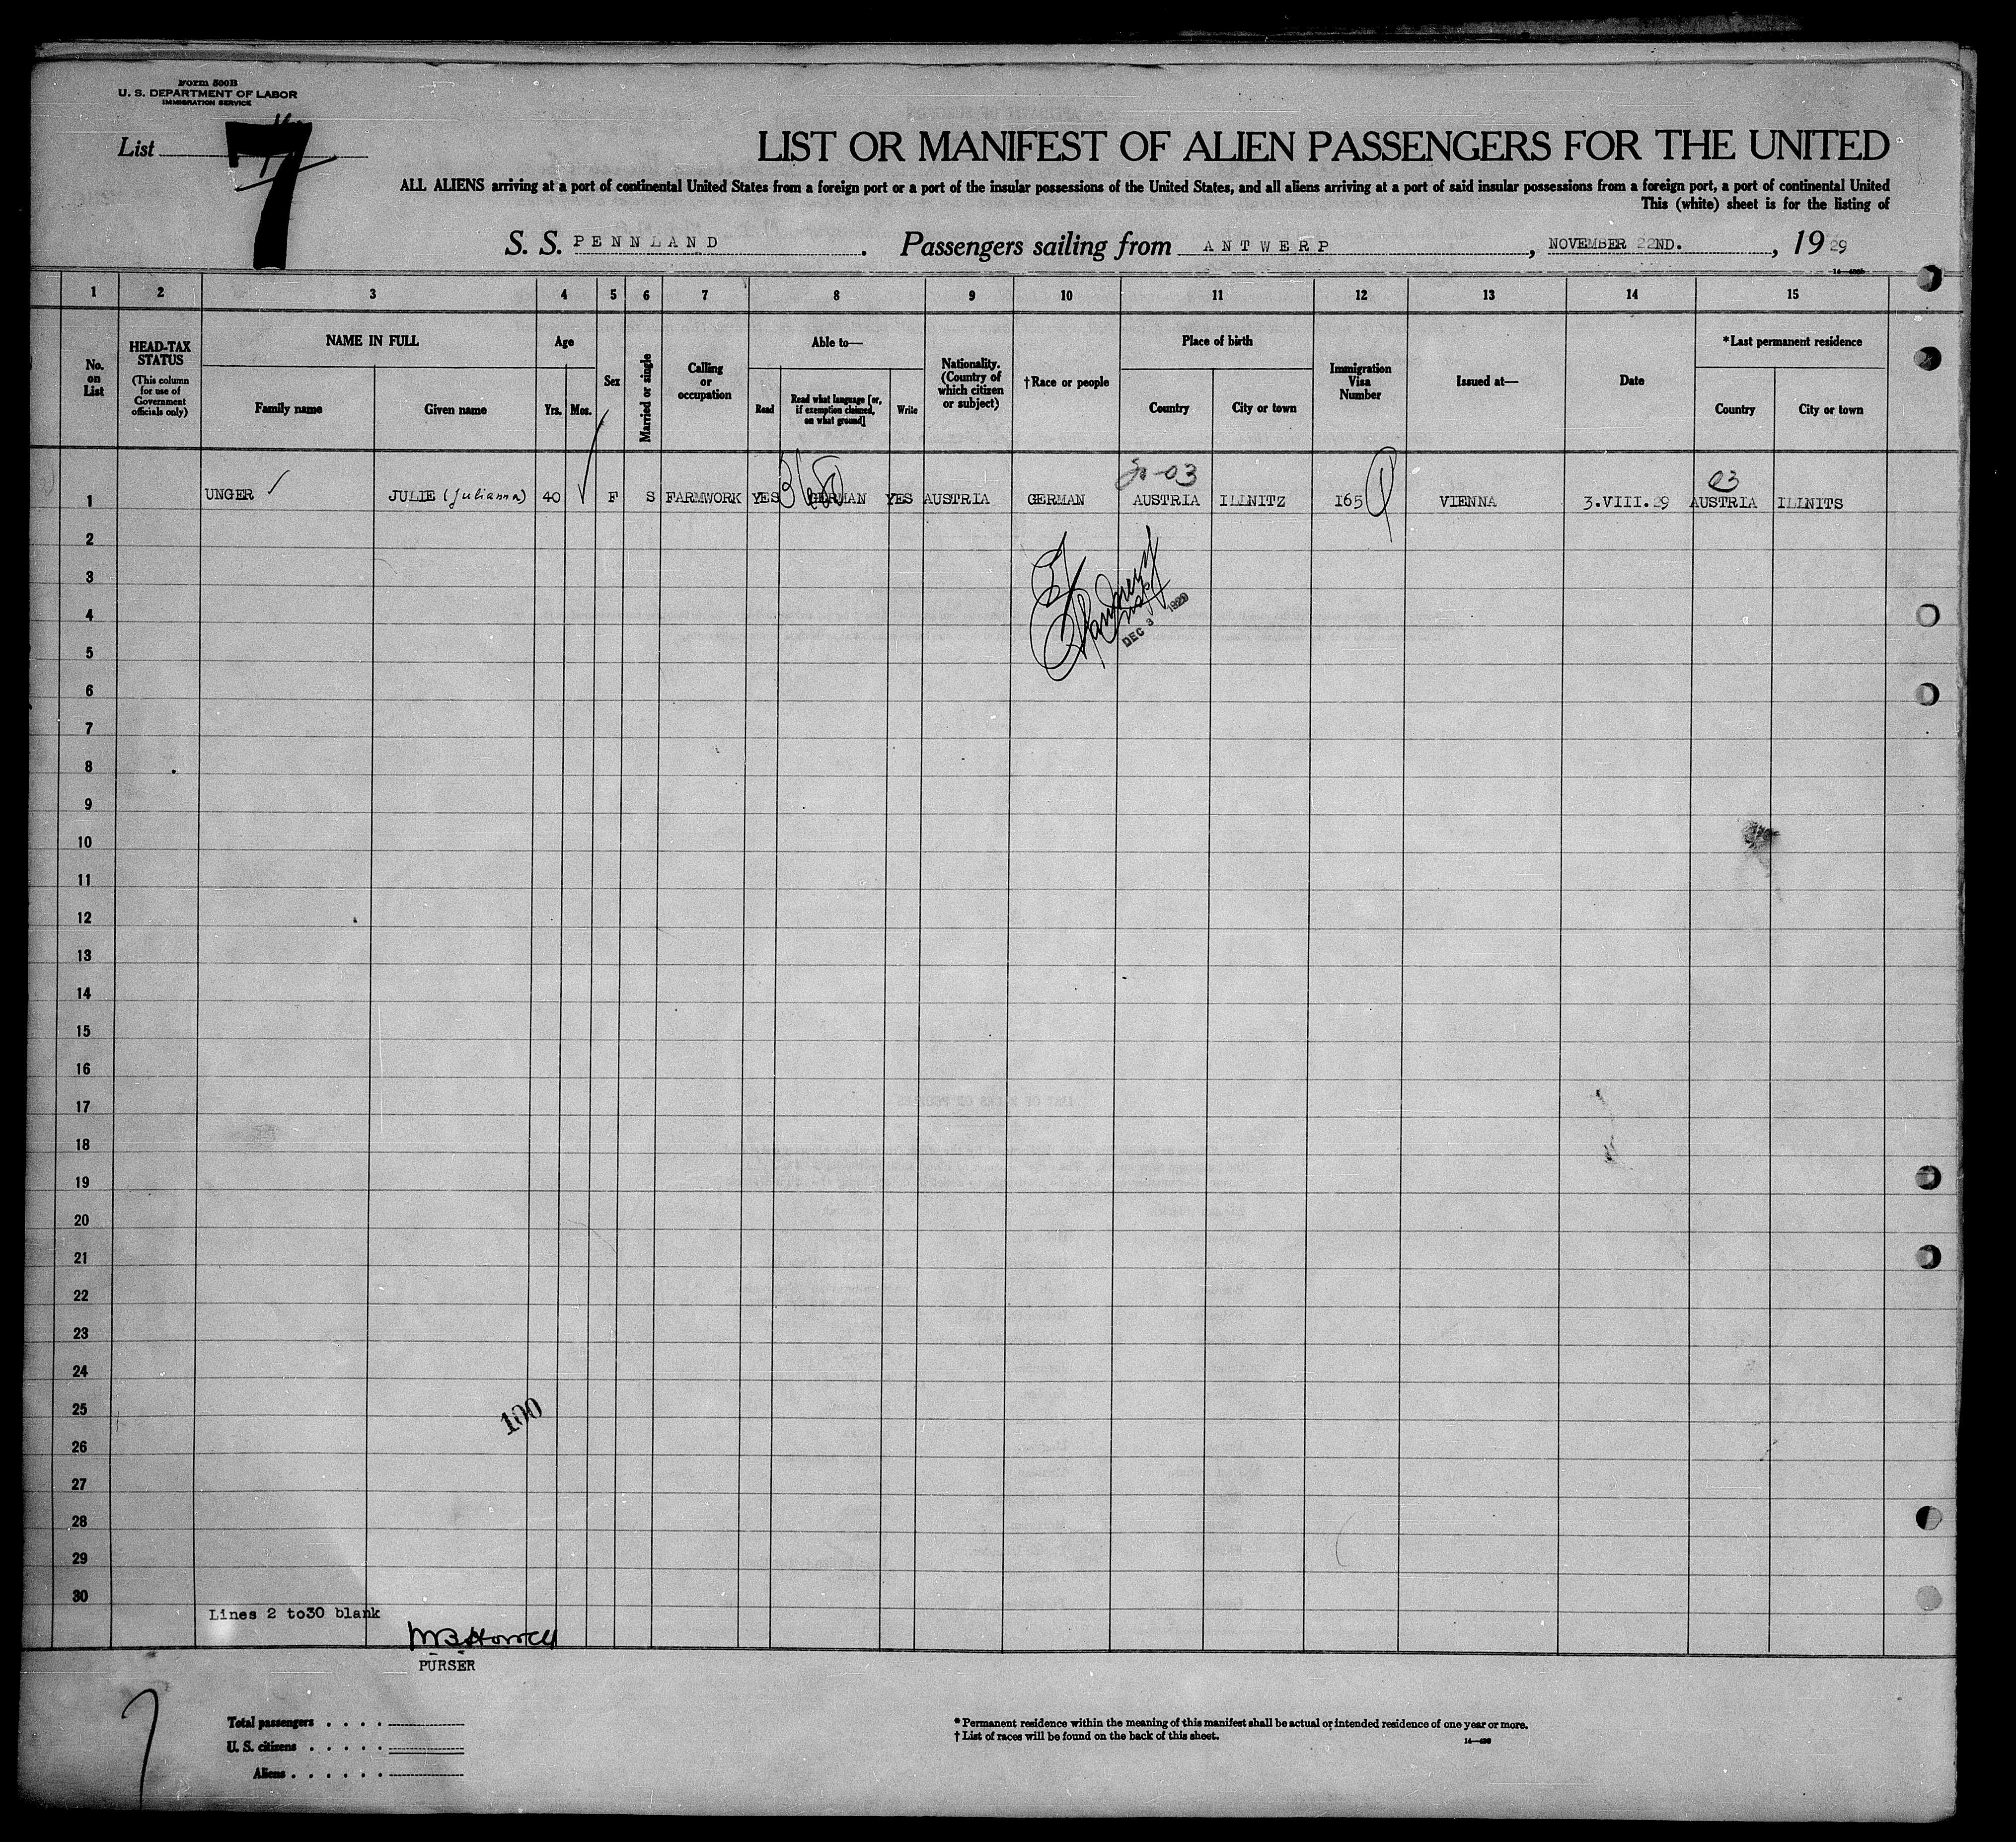 Form 500B
U. S. DEPARTMENT OF LABOR
IMMIGRATION SERVICE
List 7
LIST OR MANIFEST OF ALIEN PASSENGERS FOR THE UNITED
ALL ALIENS arriving at a port of continental United States from a foreign port or a port of the insular possessions of the United States, and all aliens arriving at a port of said insular possessions from a foreign port, a port of continental United
This (white) sheet is for the listing of
S. S. PENNLAND. Passengers sailing from ANTWERP, NOVEMBER 22ND., 1929
1 2 3 4 5 6 7 8 9 10 11 12 13 14 15
No. on List
HEAD-TAX STATUS
(This column for use of Government officials only)
NAME IN FULL
Family name
Given name
Age
Yrs. Mos.
Sex
Married or single
Calling or occupation
Able to—
Read
Read what language [or, if exemption claimed, on what ground]
Write
Nationality. (Country of which citizen or subject)
†Race or people
Place of birth
Country
City or town
Immigration Visa Number
Issued at—
Date
*Last permanent residence
Country
City or town
03
03
1 UNGER JULIE (Julianna) 40 F S FARMWORK YES GERMAN YES AUSTRIA GERMAN AUSTRIA ILLNITZ 165 VIENNA 3.VIII.29 AUSTRIA ILLNITS
2
3
4
DEC 3 1929
5
6
7
8
9
10
11
12
13
14
15
16
17
18
19
20
21
22
23
24
25
100
26
27
28
29
30
Lines 2 to30 blank
PURSER
Total passengers . . . .
U. S. citizens . . . . .
Aliens . . . . . .
* Permanent residence within the meaning of this manifest shall be actual or intended residence of one year or more.
† List of races will be found on the back of this sheet.